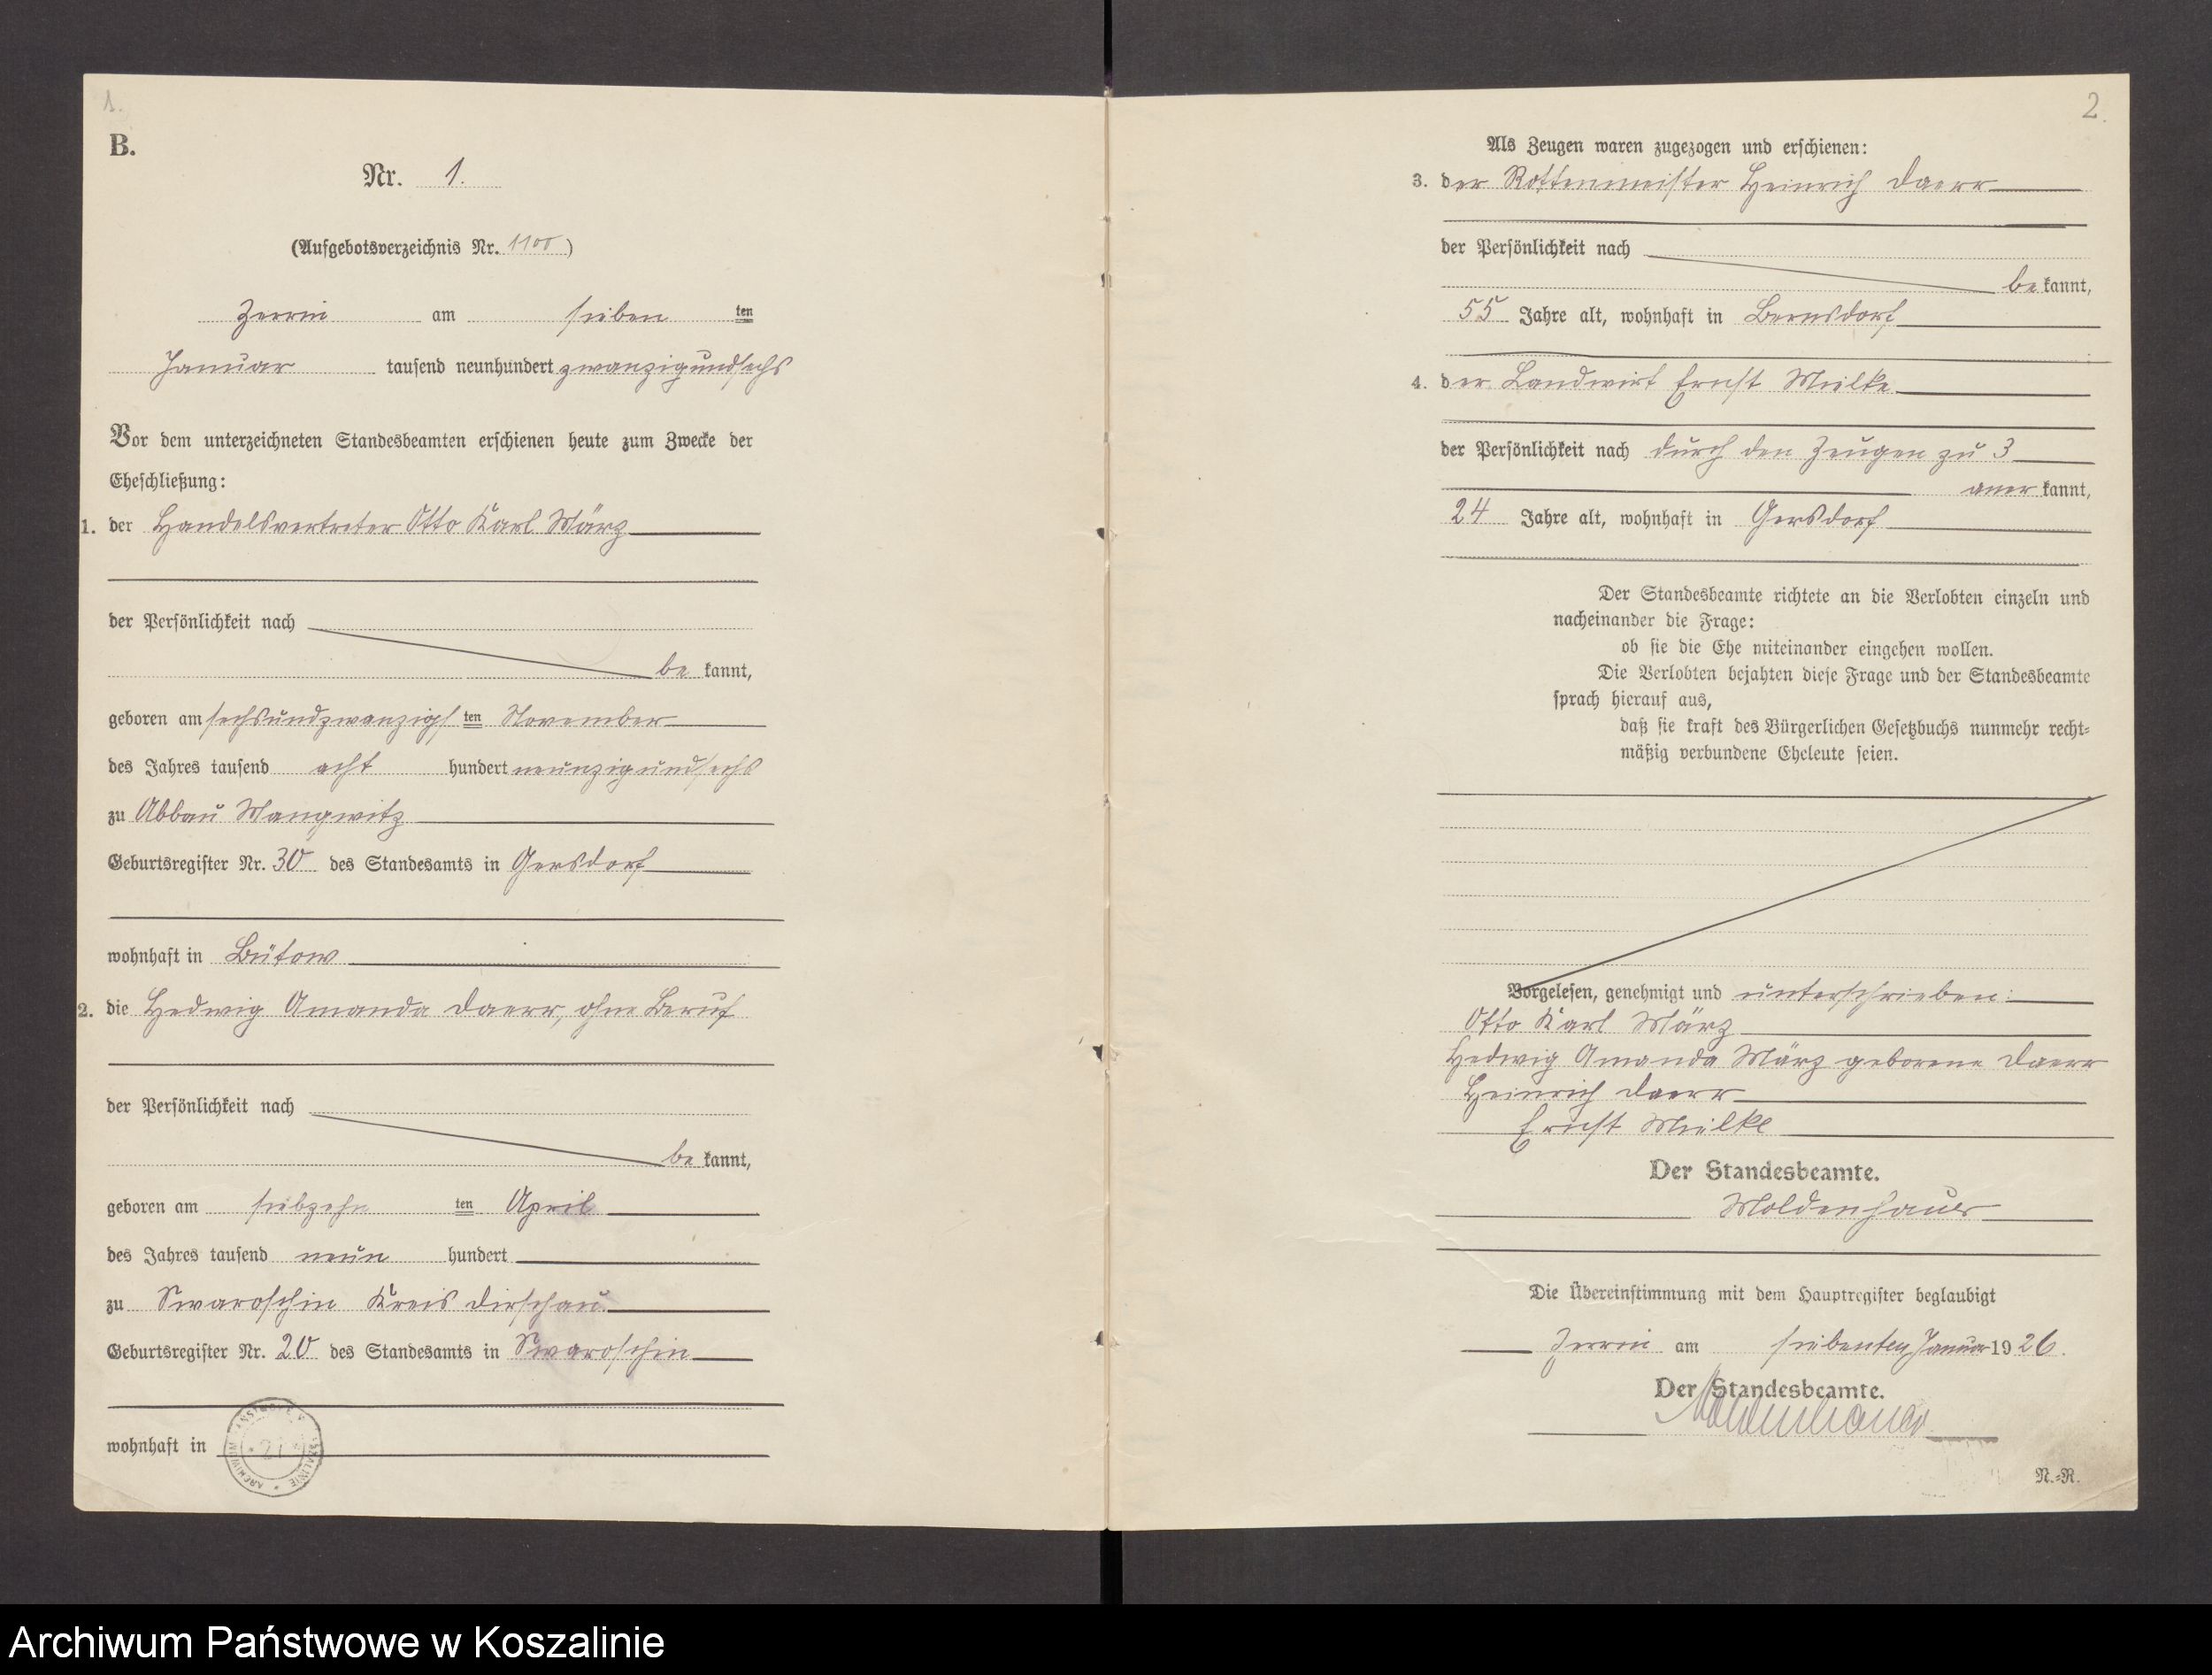 1.
B.
Nr. 1.
(Aufgebotsverzeichnis Nr. 1100)
Zerrin am sieben ten
Januar tausend neunhundert zwanzigundsechs
Vor dem unterzeichneten Standesbeamten erschienen heute zum Zwecke der
Eheschließung:
1. der Handelsvertreter Otto Karl März
der Persönlichkeit nach
be kannt,
geboren am sechsundzwanzigs ten November
des Jahres tausend acht hundert neunzigundsechs
zu Abbau Mangwitz
Geburtsregister Nr. 30 des Standesamts in Gersdorf
wohnhaft in Bütow
2. die Hedwig Amanda Daerr, ohne Beruf
der Persönlichkeit nach
be kannt,
geboren am siebzehn ten April
des Jahres tausend neun hundert
zu Swaroschin Kreis Dirschau
Geburtsregister Nr. 20 des Standesamts in Swaroschin
wohnhaft in
2.
Als Zeugen waren zugezogen und erschienen:
3. der Rottenmeister Heinrich Daerr
der Persönlichkeit nach
be kannt,
55 Jahre alt, wohnhaft in Bernsdorf
4. der Landwirt Ernst Mielke
der Persönlichkeit nach durch den Zeugen zu 3
aner kannt,
24 Jahre alt, wohnhaft in Gersdorf
Der Standesbeamte richtete an die Verlobten einzeln und
nacheinander die Frage:
ob sie die Ehe miteinander eingehen wollen.
Die Verlobten bejahten diese Frage und der Standesbeamte
sprach hierauf aus,
daß sie kraft des Bürgerlichen Gesetzbuchs nunmehr recht-
mäßig verbundene Eheleute seien.
Vorgelesen, genehmigt und unterschrieben:
Otto Karl März
Hedwig Amanda März geborene Daerr
Heinrich Daerr
Ernst Mielke
Der Standesbeamte.
Moldenhauer
Die Übereinstimmung mit dem Hauptregister beglaubigt
Zerrin am siebenten Januar 1926.
Der Standesbeamte.
Moldenhauer
N.-R.
Archiwum Państwowe w Koszalinie